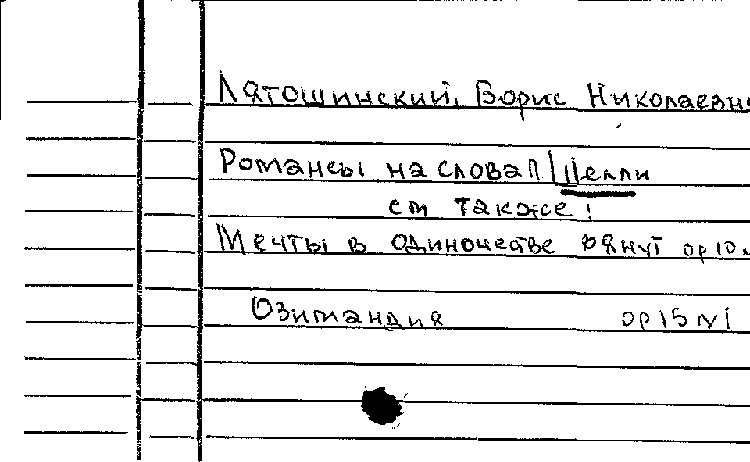 Лятошинский, Борис Николаевич
Романсы на слова П Шелли
см также:
Мечты в одиночестве вянут ор10
Озимандия ор15 №1